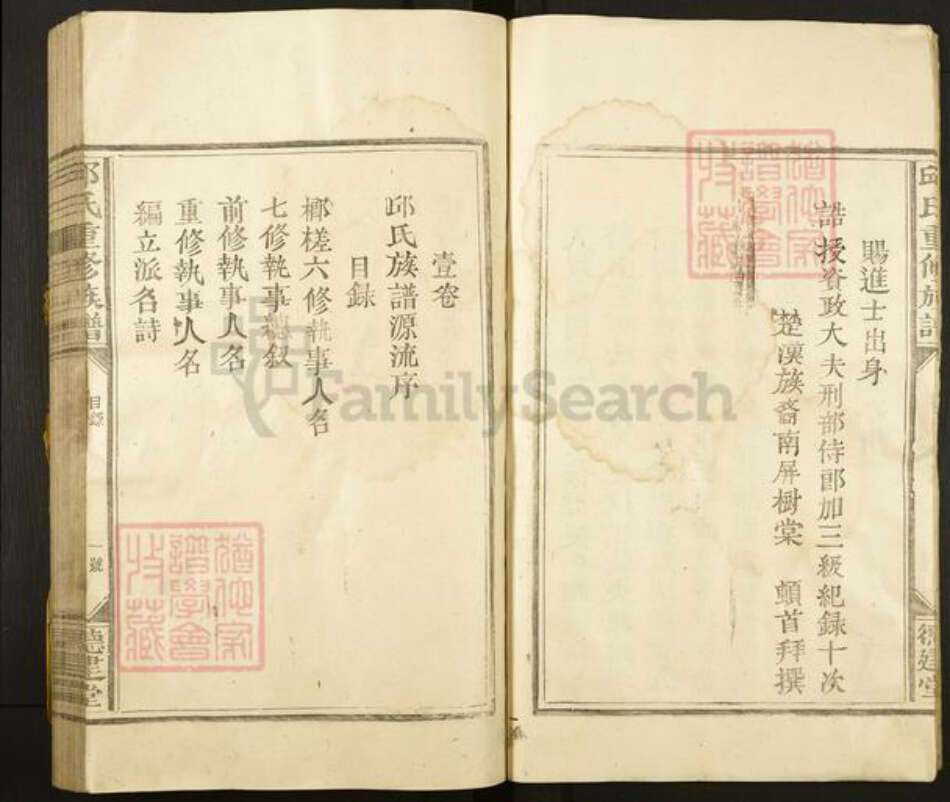 賜進士出身
誥授資政大夫刑部侍郎加三級紀録十次
楚漢族裔南屏樹棠 頓首拜撰
邱氏重修族譜
德建堂
壹卷
邱氏族譜源流序
目録
榔槎六修執事人名
七修執事總叙
前修執事人名
重修執事人名
編立派名詩
邱氏重修族譜
目録
一號
德建堂
譜學會
收藏
譜學會
收藏
FamilySearch